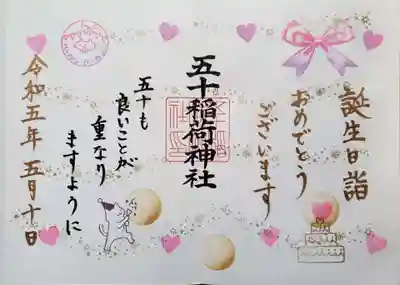 誕生日詣
おめでとう
ございます
五十稲荷神社
五十も
良いことが
重なり
ますように
令和五年 五月十日